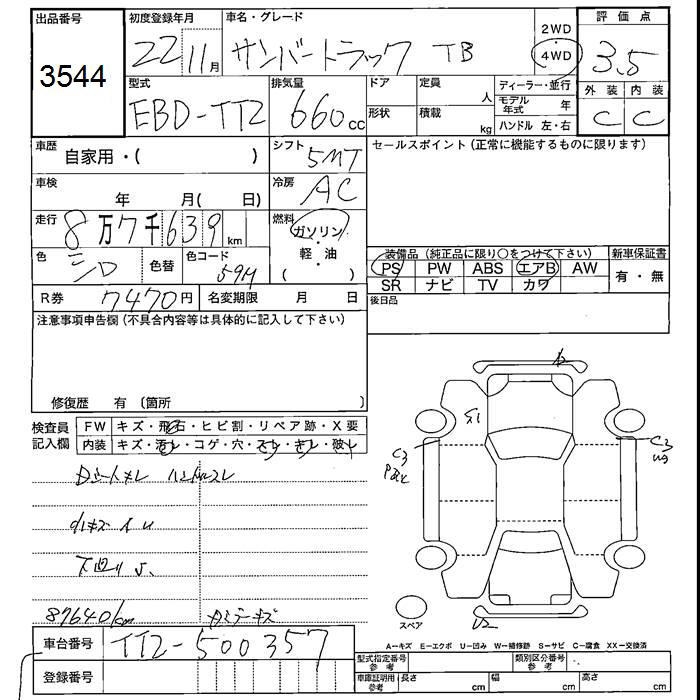 出品番号 初度登録年月 車名・グレード 2WD 評価点
3544 22 11月 サンバートラック TB 4WD 3.5
型式 排気量 ドア 定員 人 ディーラー・並行 外装 内装
EBD-TT2 660cc 形状 積載 kg モデル年式 年 C C
ハンドル 左・右
車歴 自家用・( ) シフト 5MT セールスポイント(正常に機能するものに限ります)
車検 年 月( 日) 冷房 AC
走行 8万7千639km 燃料 ガソリン・軽油( )
色 シロ 色替 色コード 59M
装備品(純正品に限り○をつけて下さい) 新車保証書
PS PW ABS エアB AW 有・無
SR ナビ TV カワ
R券 7470円 名変期限 月 日 後日品
注意事項申告欄(不具合内容等は具体的に記入して下さい)
修復歴 有(箇所
検査員記入欄 FW キズ・飛石・ヒビ割・リペア跡・X要
内装 キズ・汚レ・コゲ・穴・スレ・キレ・破レ
S1
C3
C3
U2
スペア
87640km
A-キズ E-エクボ U-凹み W-補修跡 S-サビ C-腐食 XX-交換済
車台番号 TT2-500357 型式指定番号参考 類別区分番号参考
登録番号 車庫証明用参考 長さ cm 幅 cm 高さ cm